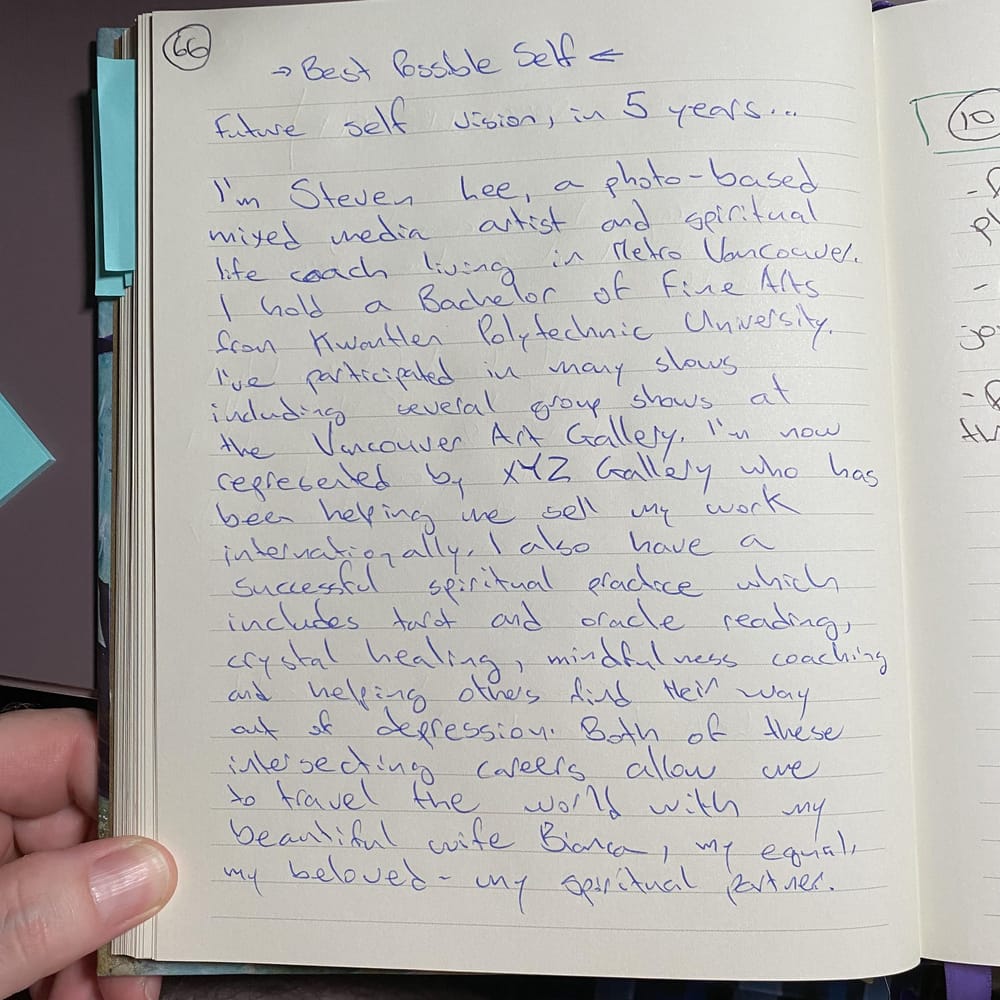 66
→ Best Possible Self ←
Future self vision, in 5 years...
I'm Steven Lee, a photo-based
mixed media artist and spiritual
life coach living in Metro Vancouver.
I hold a Bachelor of Fine Arts
from Kwantlen Polytechnic University.
I've participated in many slows
including several group shows at
the Vancouver Art Gallery. I'm now
represented by XYZ Gallery who has
been helping me sell my work
internationally. I also have a
successful spiritual practice which
includes tarot and oracle reading,
crystal healing, mindfulness coaching
and helping others find their way
out of depression. Both of these
intersecting careers allow me
to travel the world with my
beautiful wife Bianca, my equal,
my beloved - my spiritual partner.
10